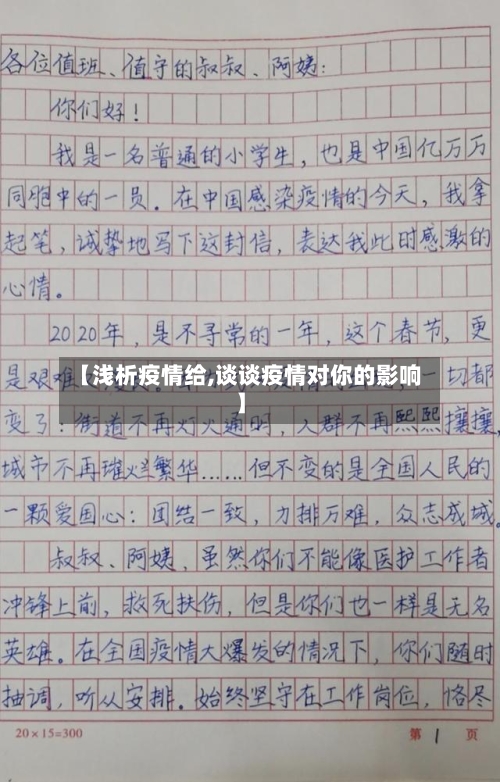 各位值班、值守的叔叔、阿姨：
你们好！
我是一名普通的小学生，也是中国亿万万
同胞中的一员。在中国感染疫情的今天，我拿
起笔，诚挚地写下这封信，表达我此时感激的
心情。
2020年，是不寻常的一年，这个春节，更
是艰难
【浅析疫情给,谈谈疫情对你的影响
】
一切都
变了：街道不再灯火通明，人群不再熙熙攘攘，
城市不再璀烂繁华……但不变的是全国人民的
一颗爱国心：团结一致，力排万难，众志成城。
叔叔、阿姨，虽然你们不能像医护工作者
冲锋上前，救死扶伤，但是你们也一样是无名
英雄。在全国疫情大爆发的情况下，你们随时
抽调，听从安排。始终坚守在工作岗位，恪尽
20×15=300 第 1 页